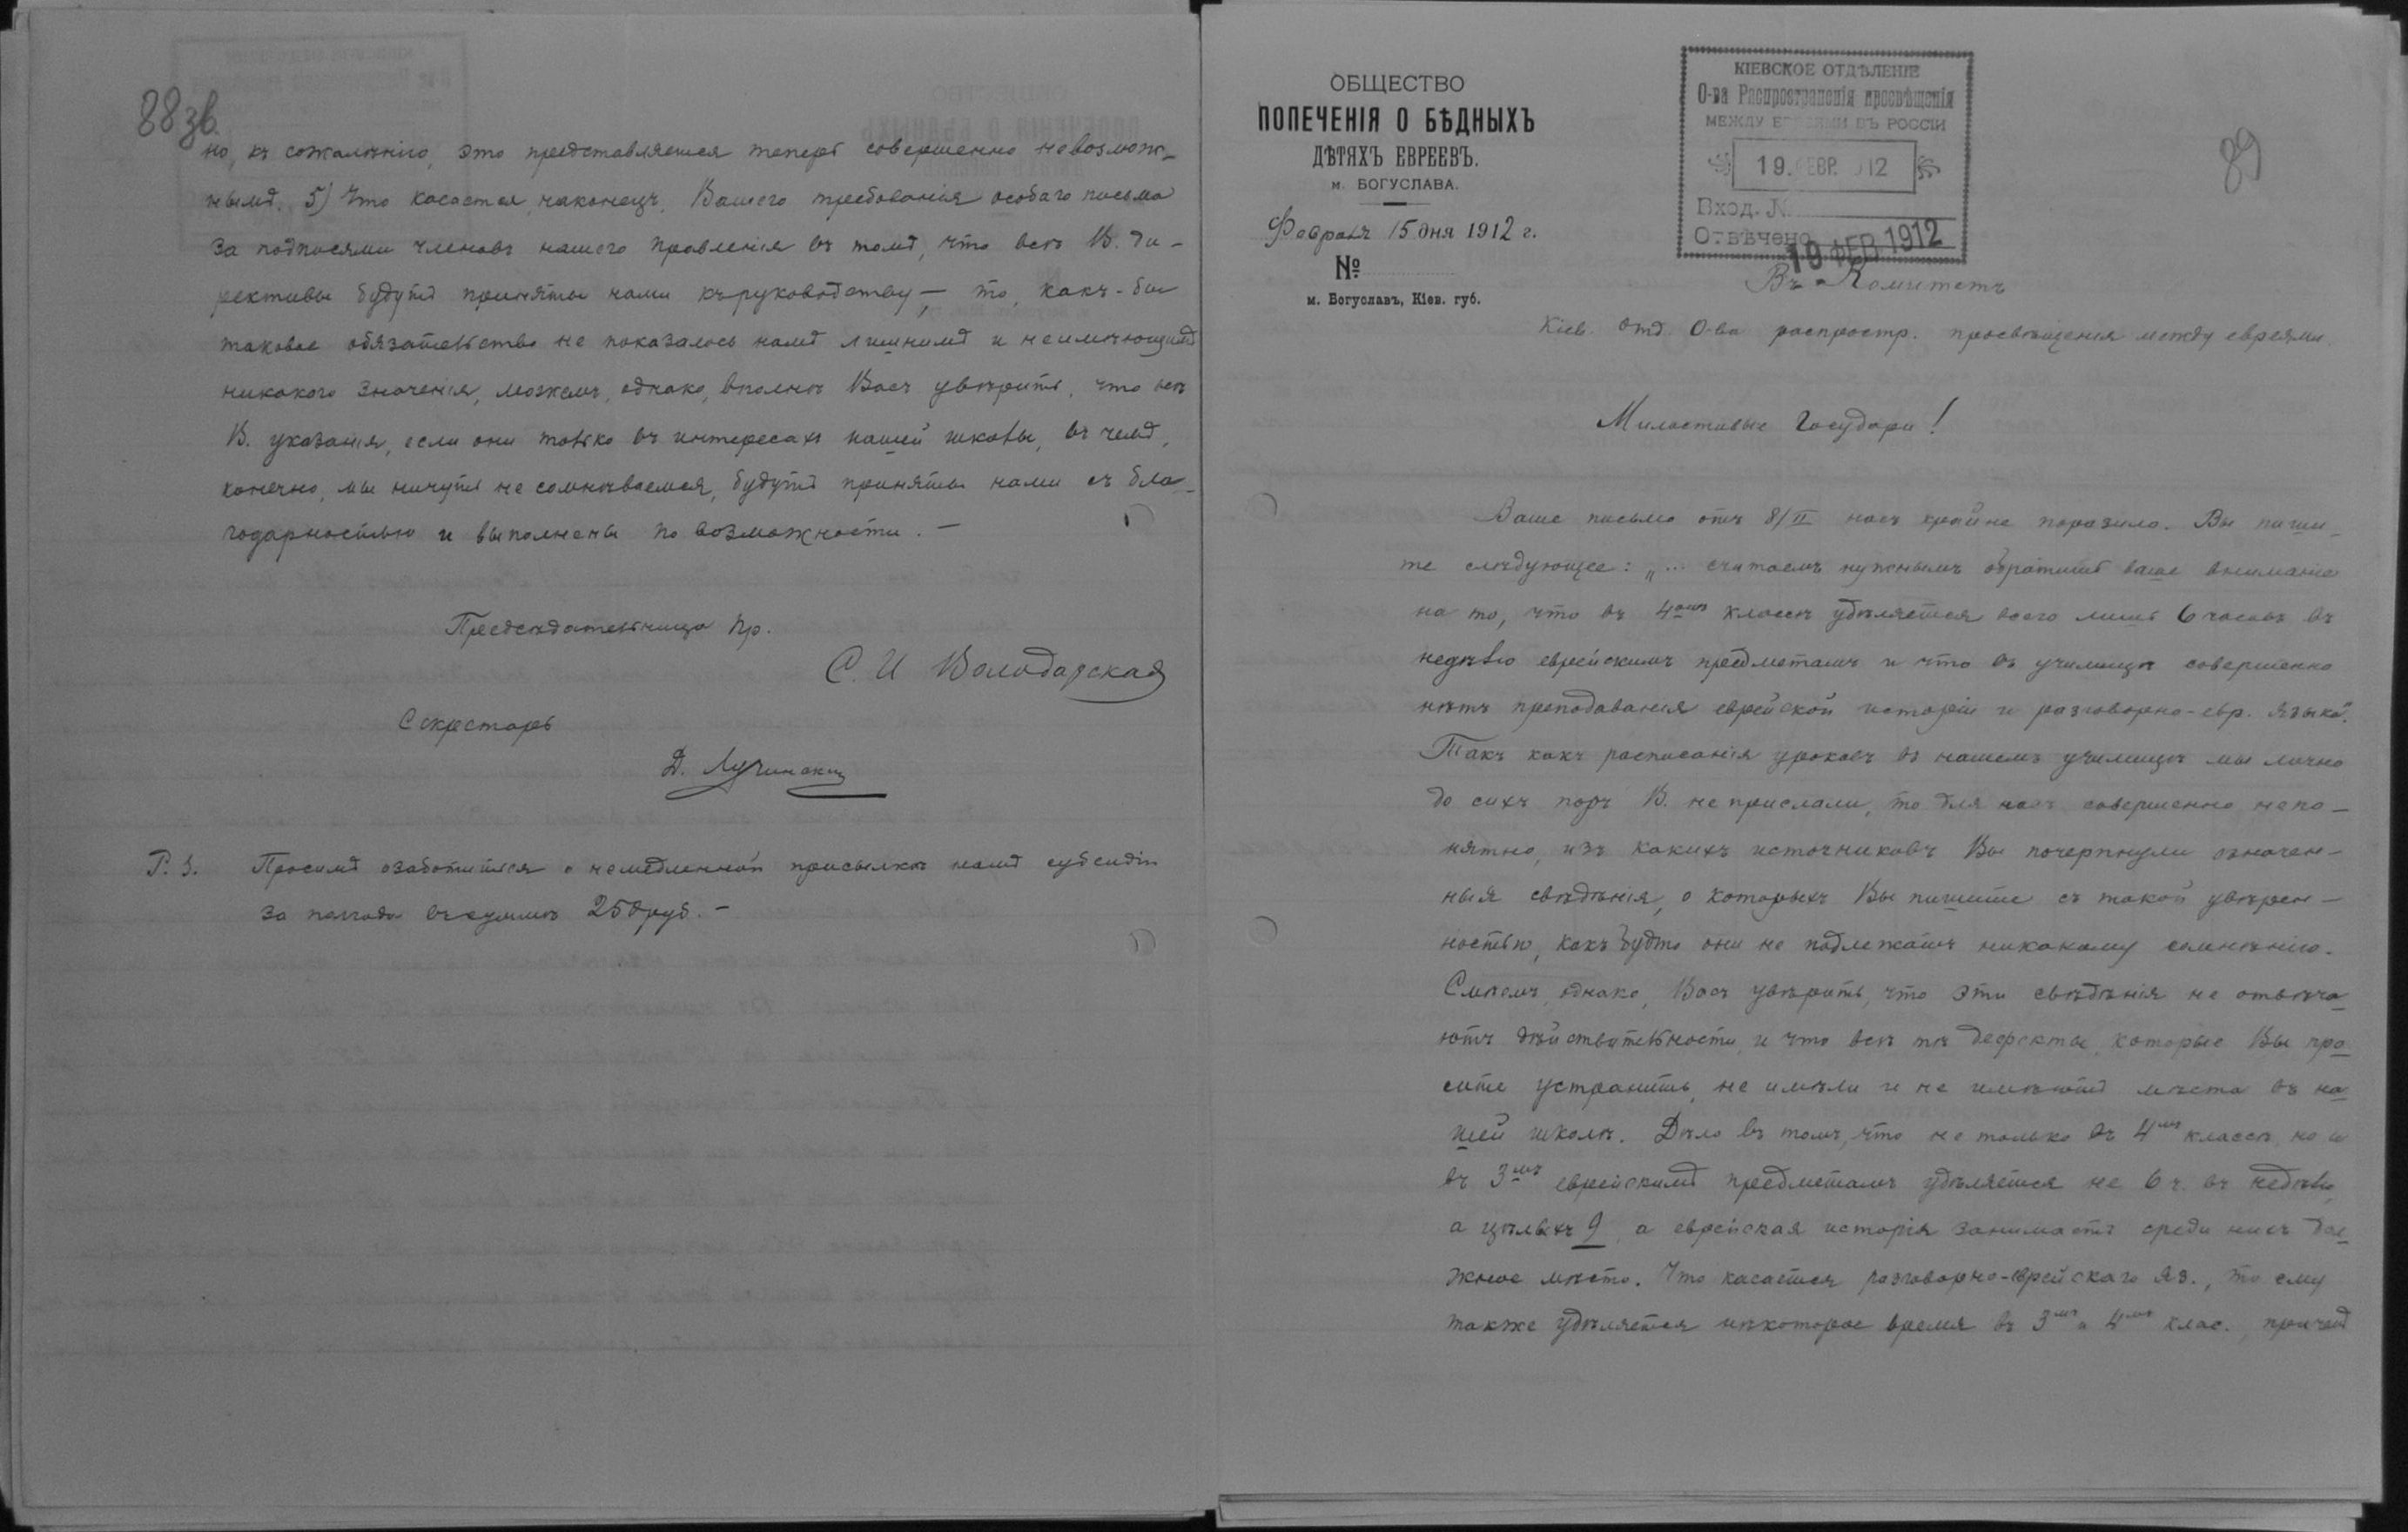 88зв.
но, къ сожалѣнію, это представляется теперь совершенно невозмож-
нымъ. 5) Что касается, наконецъ, Вашего требованія особаго письма
за подписями членовъ нашего правленія въ томъ, что всѣ В. ди-
рективы будутъ приняты нами къ руководству, — то, какъ-бы
таковое обязательство не показалось намъ лишнимъ и неимѣющимъ
никакого значенія, можемъ, однако, вполнѣ Васъ увѣрить, что всѣ
В. указанія, если они только въ интересахъ нашей школы, въ чемъ,
конечно, мы ничуть не сомнѣваемся, будутъ приняты нами съ бла-
годарностью и выполнены по возможности. —
Предсѣдательница Пр.
С. И Володарская
Секретарь
Д. Лучинскій
P. S. Просимъ озаботиться о немедленной присылкѣ намъ субсидіи
за полгода въ суммѣ 250 руб. —
ОБЩЕСТВО
ПОПЕЧЕНІЯ О БѢДНЫХЪ
ДѢТЯХЪ ЕВРЕЕВЪ.
м. БОГУСЛАВА.
Февраля 15 дня 1912 г.
№
м. Богуславъ, Кіев. губ.
КІЕВСКОЕ ОТДѢЛЕНІЕ
О-ва Распространенія просвѣщенія
МЕЖДУ ЕВРЕЯМИ ВЪ РОССІИ
19. ФЕВР. 1912
Вход. №
Отвѣчено
19 ФЕВ. 1912
89
Въ Комитетъ
Кіев. Отд. О-ва распростр. просвѣщенія между евреями.
Милостивые Государи!
Ваше письмо отъ 8/II насъ крайне поразило. Вы пиши-
те слѣдующее: „... считаемъ нужнымъ обратить ваше вниманіе
на то, что въ 4омъ классѣ удѣляется всего лишь 6 часовъ въ
недѣлю еврейскимъ предметамъ и что въ училищѣ совершенно
нѣтъ преподаванія еврейской исторіи и разговорно-евр. языка“.
Такъ какъ расписанія уроковъ въ нашемъ училищѣ мы лично
до сихъ поръ В. не прислали, то для насъ совершенно непо-
нятно, изъ какихъ источниковъ Вы почерпнули означен-
ныя свѣдѣнія, о которыхъ Вы пишите съ такой увѣрен-
ностью, какъ будто они не подлежатъ никакому сомнѣнію.
Смѣемъ, однако, Васъ увѣрить, что эти свѣдѣнія не отвѣча-
ютъ дѣйствительности, и что всѣ тѣ дефекты, которые Вы про-
сите устранить, не имѣли и не имѣютъ мѣста въ на-
шей школѣ. Дѣло въ томъ, что не только въ 4мъ классѣ, но и
въ 3мъ еврейскимъ предметамъ удѣляется не 6 ч. въ недѣлю,
а цѣлыхъ 9, а еврейская исторія занимаетъ среди нихъ дол-
жное мѣсто. Что касается разговорно-еврейскаго яз., то ему
также удѣляется нѣкоторое время въ 3мъ и 4мъ клас., причемъ